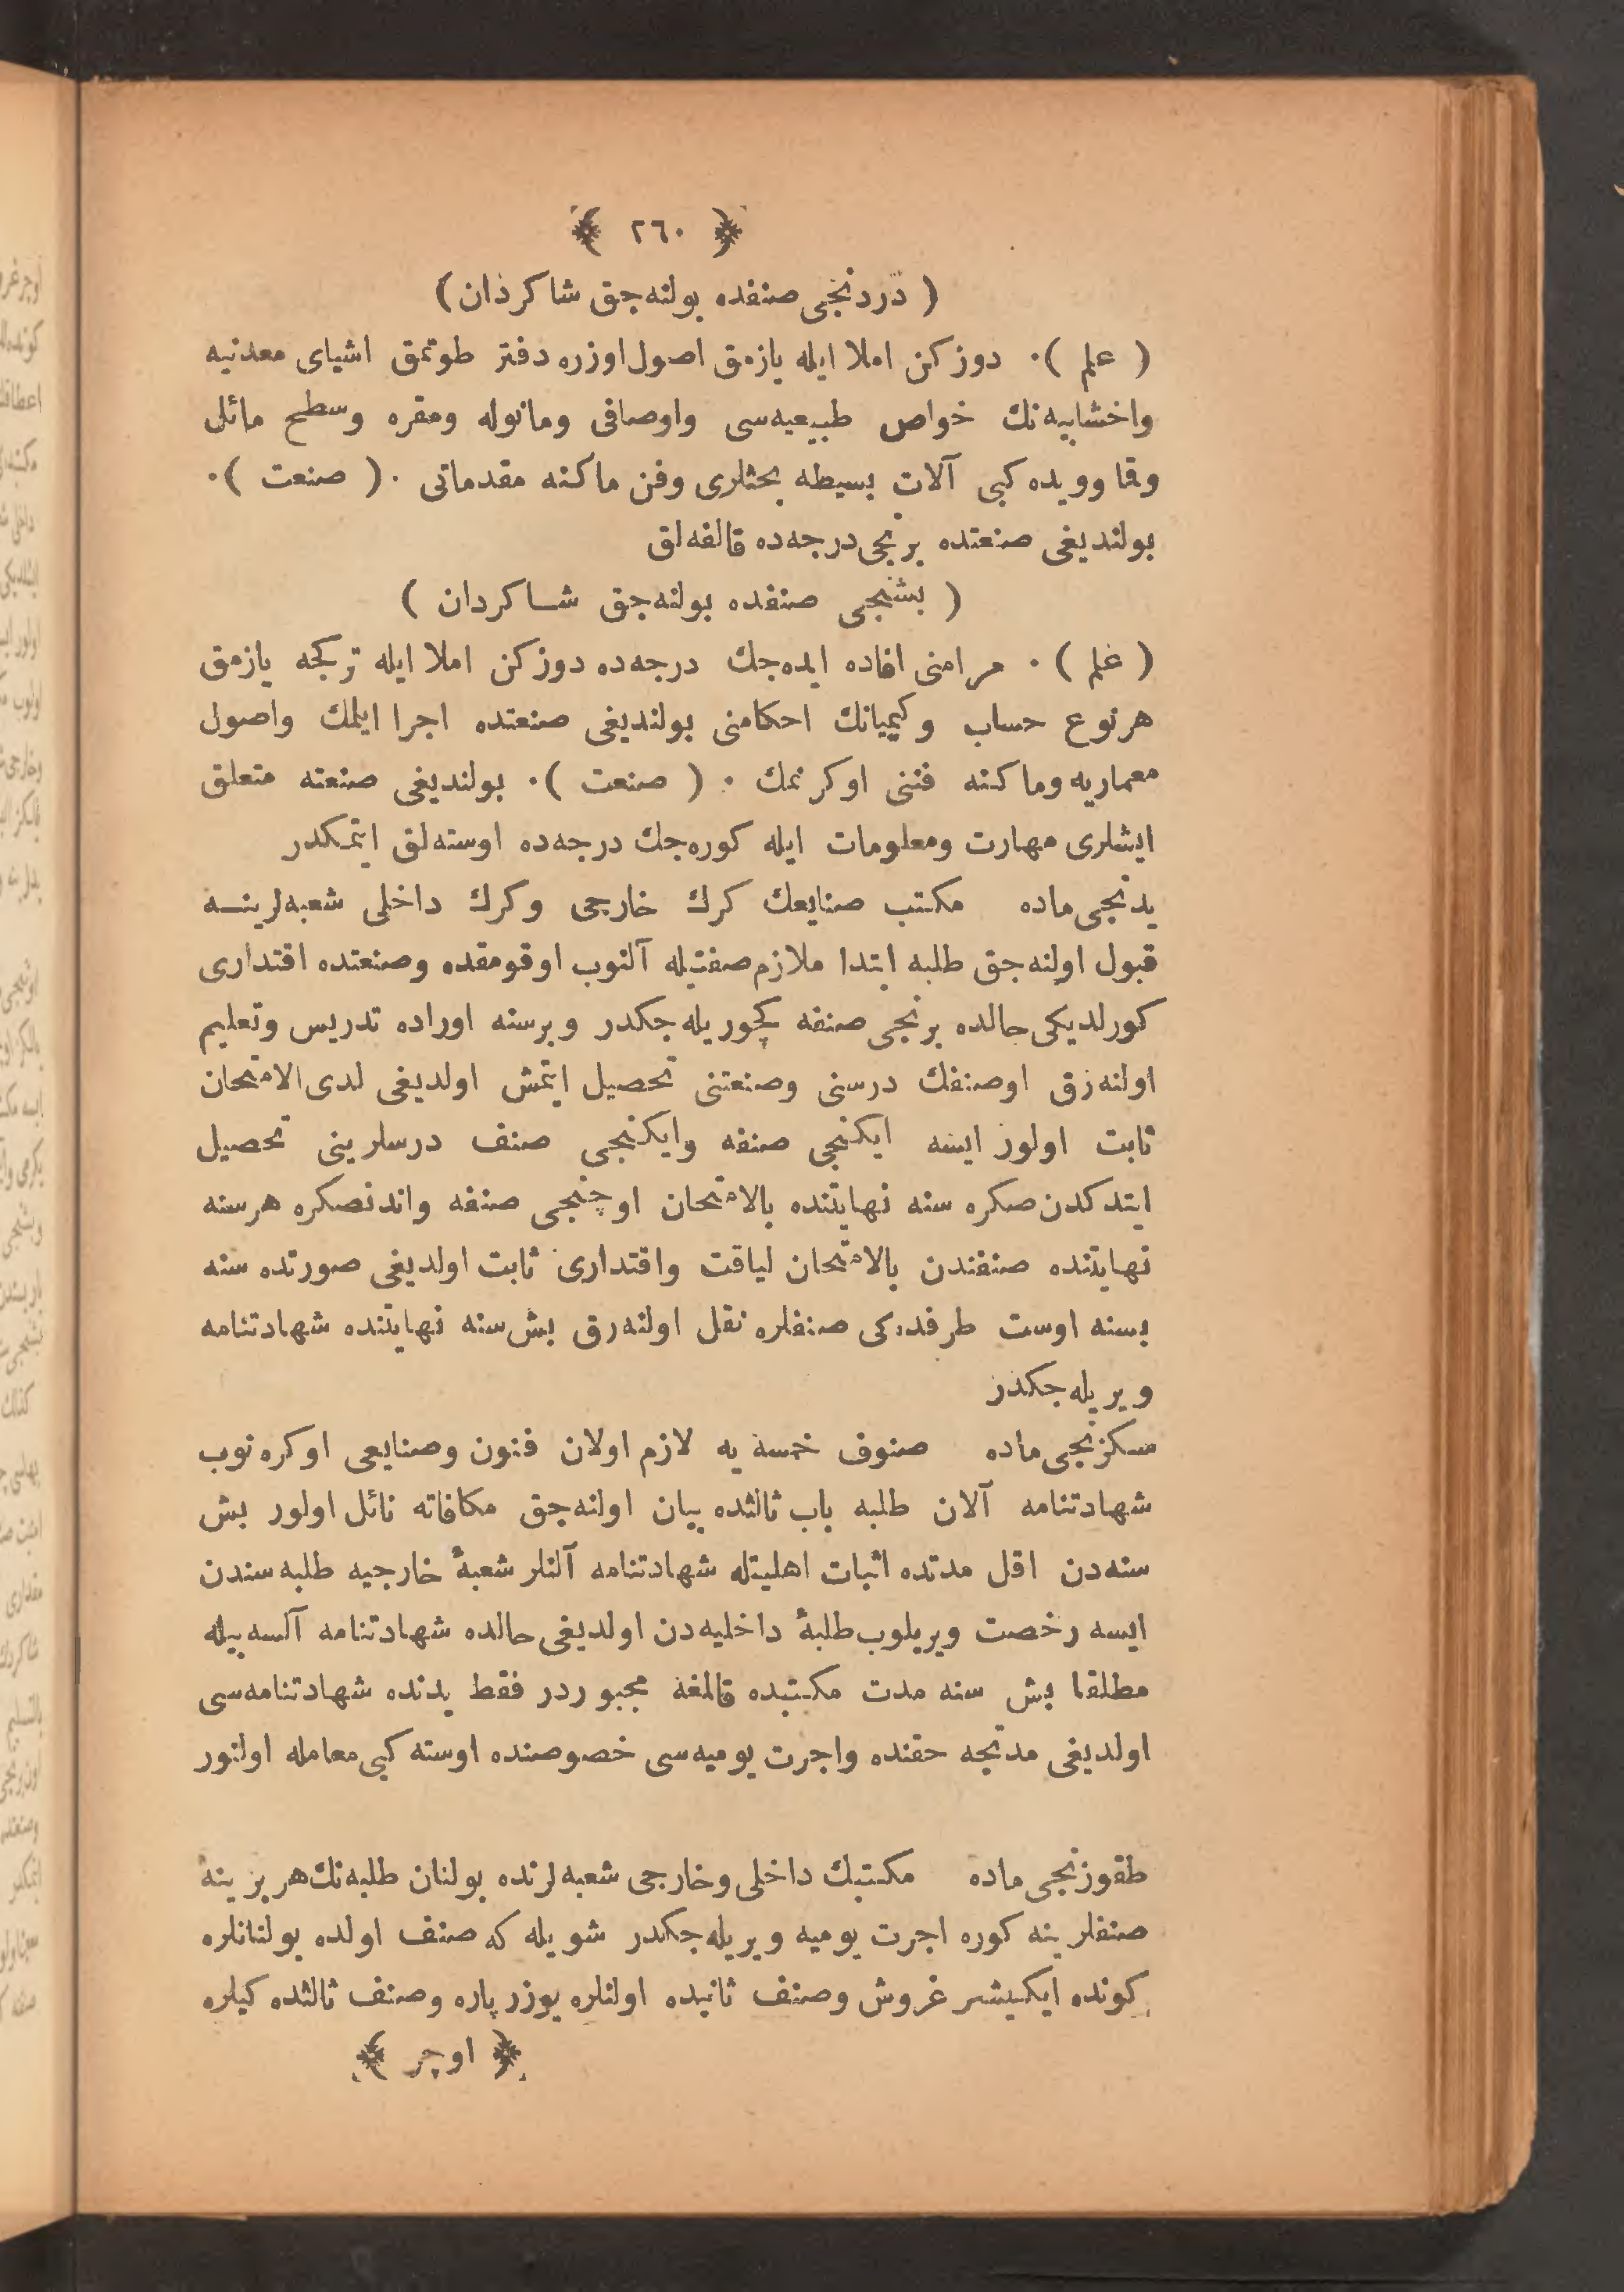 ﴿ ٢٦٠ ﴾
( دردنجی صنفده بولنه‌جق شاكردان )
( علم ) ٠ دوزكن املا ایله یازمق اصول اوزره دفتر طوتمق اشیای معدنیه
واخشابیه‌نك خواص طبیعیه‌سی واوصافی ومانوله ومقره وسطح مائلی
وقا وویده كبی آلات بسیطه بحثلری وفن ماكنه مقدماتی ٠ ( صنعت ) ٠
بولندیغی صنعتده برنجی درجه‌ده قالفه‌لق
( بشنجی صنفده بولنه‌جق شاكردان )
( علم ) ٠ مرامنی افاده ایده‌جك درجه‌ده دوزكن املا ایله تركجه یازمق
هرنوع حساب وكیمیانك احكامنی بولندیغی صنعتده اجرا ایلمك واصول
معماریه وماكنه فننی اوكرنمك ٠ ( صنعت ) ٠ بولندیغی صنعته متعلق
ایشلری مهارت ومعلومات ایله كوره‌جك درجه‌ده اوسته‌لق ایتمكدر
یدنجی ماده مكتب صنایعك كرك خارجی وكرك داخلی شعبه‌لرینه
قبول اولنه‌جق طلبه ابتدا ملازم صفتیله آلنوب اوقومقده وصنعتده اقتداری
كورلدیكی حالده برنجی صنفه كچوریله‌جكدر وبرسنه اوراده تدریس وتعلیم
اولنه‌رق اوصنفك درسنی وصنعتنی تحصیل ایتمش اولدیغی لدی الامتحان
ثابت اولور ایسه ایكنجی صنفه وایكنجی صنف درسلرینی تحصیل
ایتدكدن صكره سنه نهایتنده بالامتحان اوچنجی صنفه واندنصكره هرسنه
نهایتنده صنفندن بالامتحان لیاقت واقتداری ثابت اولدیغی صورتده سنه
بسنه اوست طرفده‌كی صنفلره نقل اولنه‌رق بش سنه نهایتنده شهادتنامه
ویریله‌جكدر
سكزنجی ماده صنوف خمسه یه لازم اولان فنون وصنایعی اوكره‌نوب
شهادتنامه آلان طلبه باب ثالثده بیان اولنه‌جق مكافاته نائل اولور بش
سنه‌دن اقل مدتده اثبات اهلیتله شهادتنامه آلنلر شعبهٔ خارجیه طلبه‌سندن
ایسه رخصت ویریلوب طلبهٔ داخلیه‌دن اولدیغی حالده شهادتنامه آلسه بیله
مطلقا بش سنه مدت مكتبده قالمغه مجبوردر فقط یدنده شهادتنامه‌سی
اولدیغی مدتجه حقنده واجرت یومیه‌سی خصوصنده اوسته كبی معامله اولنور
طقوزنجی ماده مكتبك داخلی وخارجی شعبه‌لرنده بولنان طلبه‌نك هربرینه
صنفلرینه كوره اجرت یومیه ویریله‌جكدر شویله كه صنف اولده بولنانلره
كونده ایكیشر غروش وصنف ثانیده اولنلره یوزر پاره وصنف ثالثده كیلره
﴿ اوچر ﴾